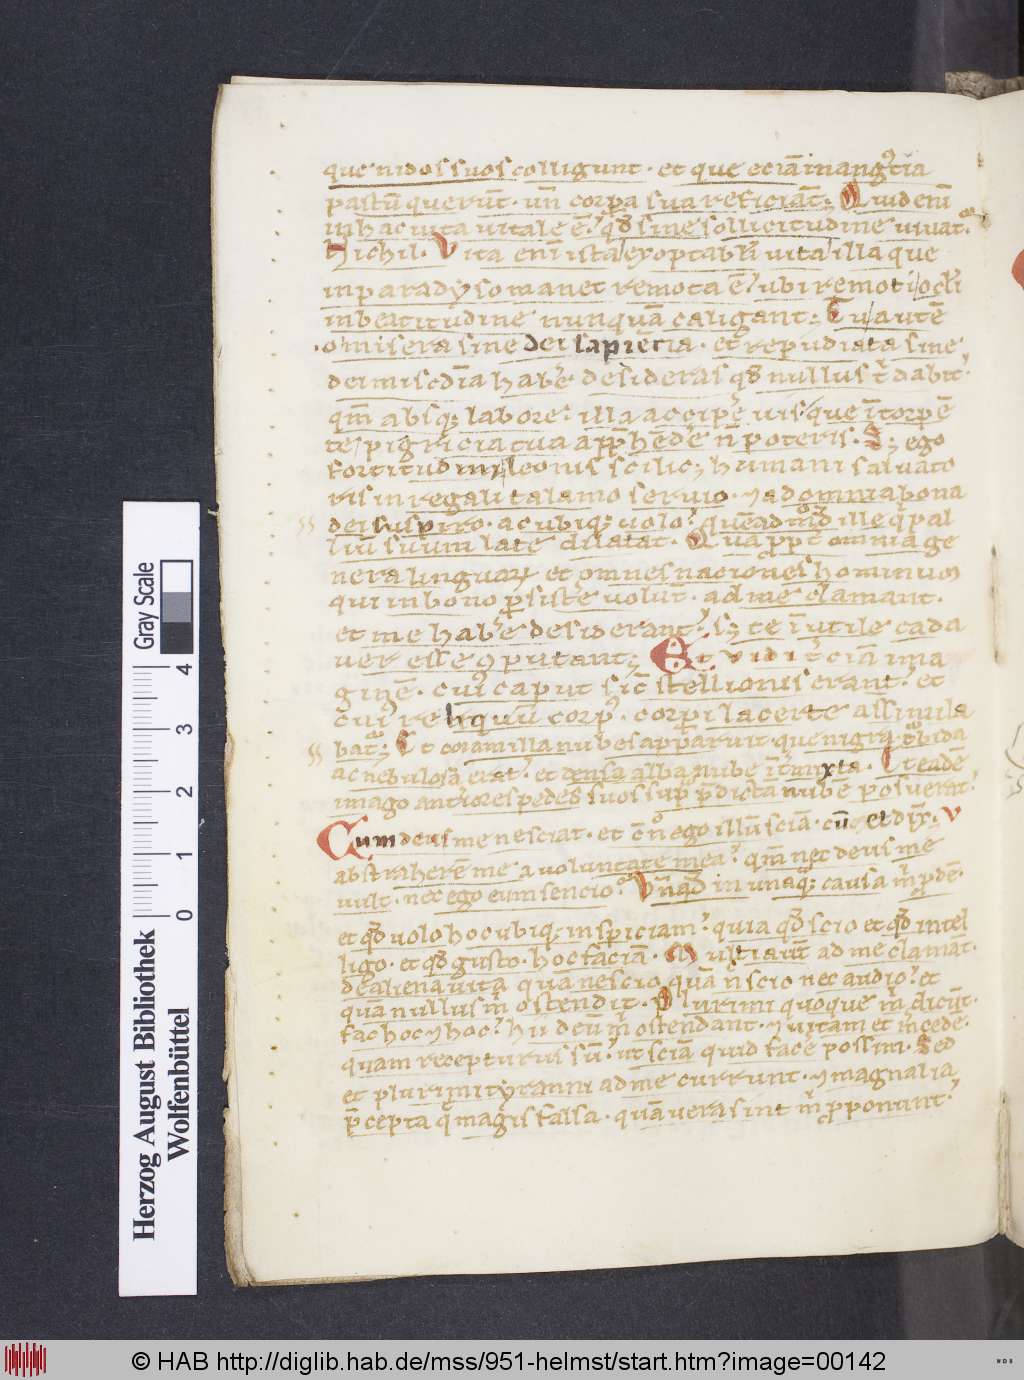 que nidos suos colligunt · et que eciā in angꝰtia
pastū querūt · un̄ corpa sua reficiāt ; Quid enī
in hac vita vitale ē · qd̄ sine sollicitudine vivat ·
Nichil · Vita enī ista exoptabil' vita illa que
in paradyso manet remota ē · ubi remoti ocl'i
in beatitudine nunquā caligant ; Tu autē
· o misera sine dei sapiētia · et repudiata sine
dei mis̄cdīa hab'e desideras qd̄ nullus t' dabit ·
qm̄ absqꝫ labore · illa accip'e vis · que ī torpē
te pigricia tua app̄h'ed'e n̄ poteris · Sꝫ ego
fortitudini leonis scilicꝫ humani salvato
ris in regali talamo servio · ⁊ ad omnia bona
dei suspiro · ac ubiqꝫ volo · quēadm̄d ille q' pal
liū suum late dilatat · Qua ppt' omnia ge
nera linguaꝝ et omnes naciones hominum
qui in bono p̄siste' volūt · ad me clamant ·
et me hab'e desiderant · sꝫ te īutile cada
ver esse ꝯputant ; Et vidi t'ciā ima
ginē · cuꝰ caput sic̄ stellionis erant · et
cuꝰ reliquū corpꝰ · corpi lacerte assimila
bat' ; Et coram illa nubes apparuit · que nigra · t'bida
ac nebulosa erat · et densa alba nube īt'mixta · Et eadē
imago ant'iores pedes suos sup p̄dictā nubē posuerat ·
Cum deus me nesciat · et ēn̄ ego illū sciā · cū et dix' · v
abst'aherem me a voluntate mea · qm̄ nec deus me
vult · nec ego eum sencio · Un̄ qd̄ in unaqꝫ causa m̄ p̄dē
et qd̄ volo hoc ubiqꝫ inspiciam · quia qd̄ scio et qd̄ intel
ligo · et qd̄ gusto · hoc faciā · Multi aūt ad me clamāt ·
de aliena vita quā nescio · quā n̄ scio nec audio · et
quā nullus m̄ ostendit · Plurimi quoque m̄ dicūt ·
fac hoc ⁊ hoc · hii deū m̄ ostendant · ⁊ vitam et m'cedē ·
quam recepturus sū · ut sciā quid face' possim · Sed
et plurimi tyranni ad me currunt · ⁊ magnalia
p̄cepta q' magis falsa · quā vera sint m̄ pponunt ·
Herzog August Bibliothek
Wolfenbüttel
Gray Scale
0 1 2 3 4
© HAB http://diglib.hab.de/mss/951-helmst/start.htm?image=00142